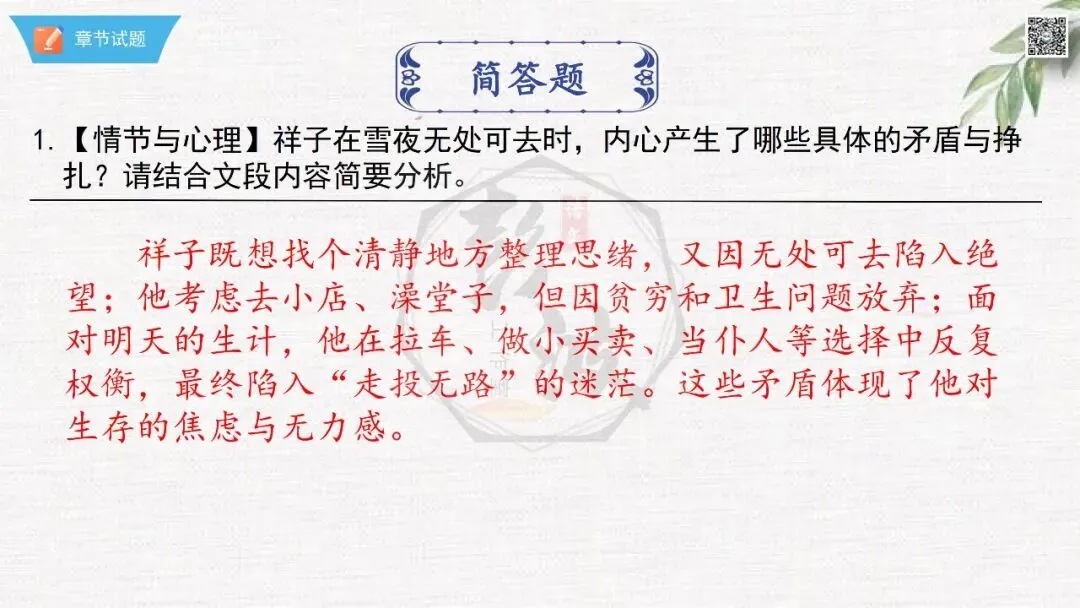 章节试题
简答题
1.【情节与心理】祥子在雪夜无处可去时，内心产生了哪些具体的矛盾与挣
扎？请结合文段内容简要分析。
祥子既想找个清静地方整理思绪，又因无处可去陷入绝
望；他考虑去小店、澡堂子，但因贫穷和卫生问题放弃；面
对明天的生计，他在拉车、做小买卖、当仆人等选择中反复
权衡，最终陷入“走投无路”的迷茫。这些矛盾体现了他对
生存的焦虑与无力感。